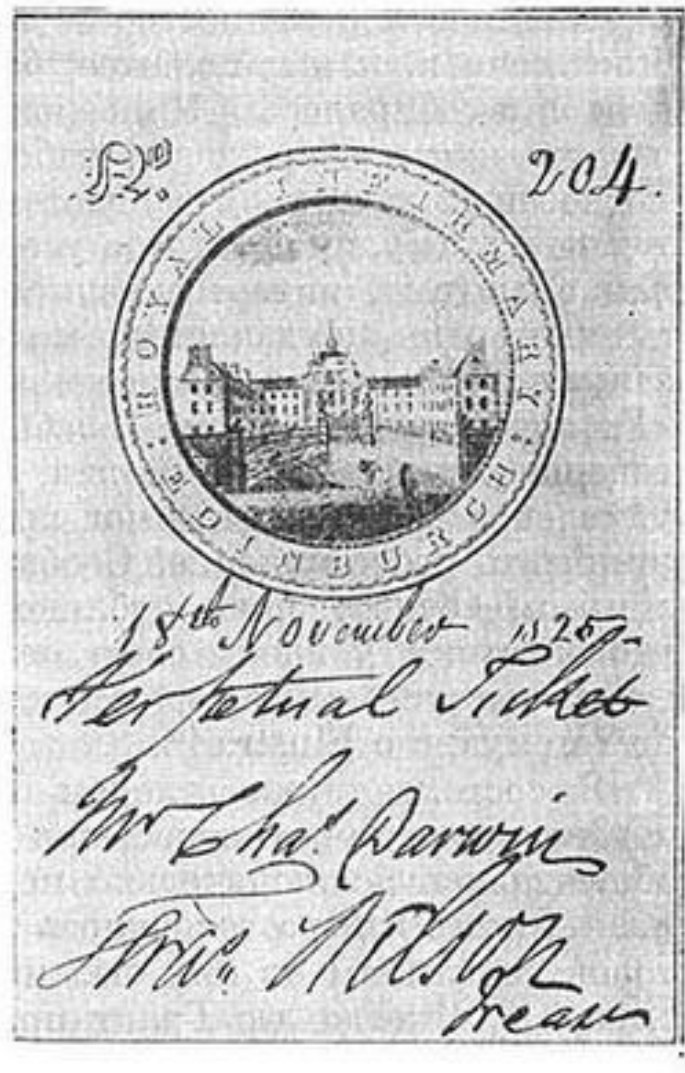 No 204.
ROYAL INFIRMARY
EDINBURGH
18th November 1825
Perpetual Ticket
Mr Chas. Darwin
Wilson
Treasr